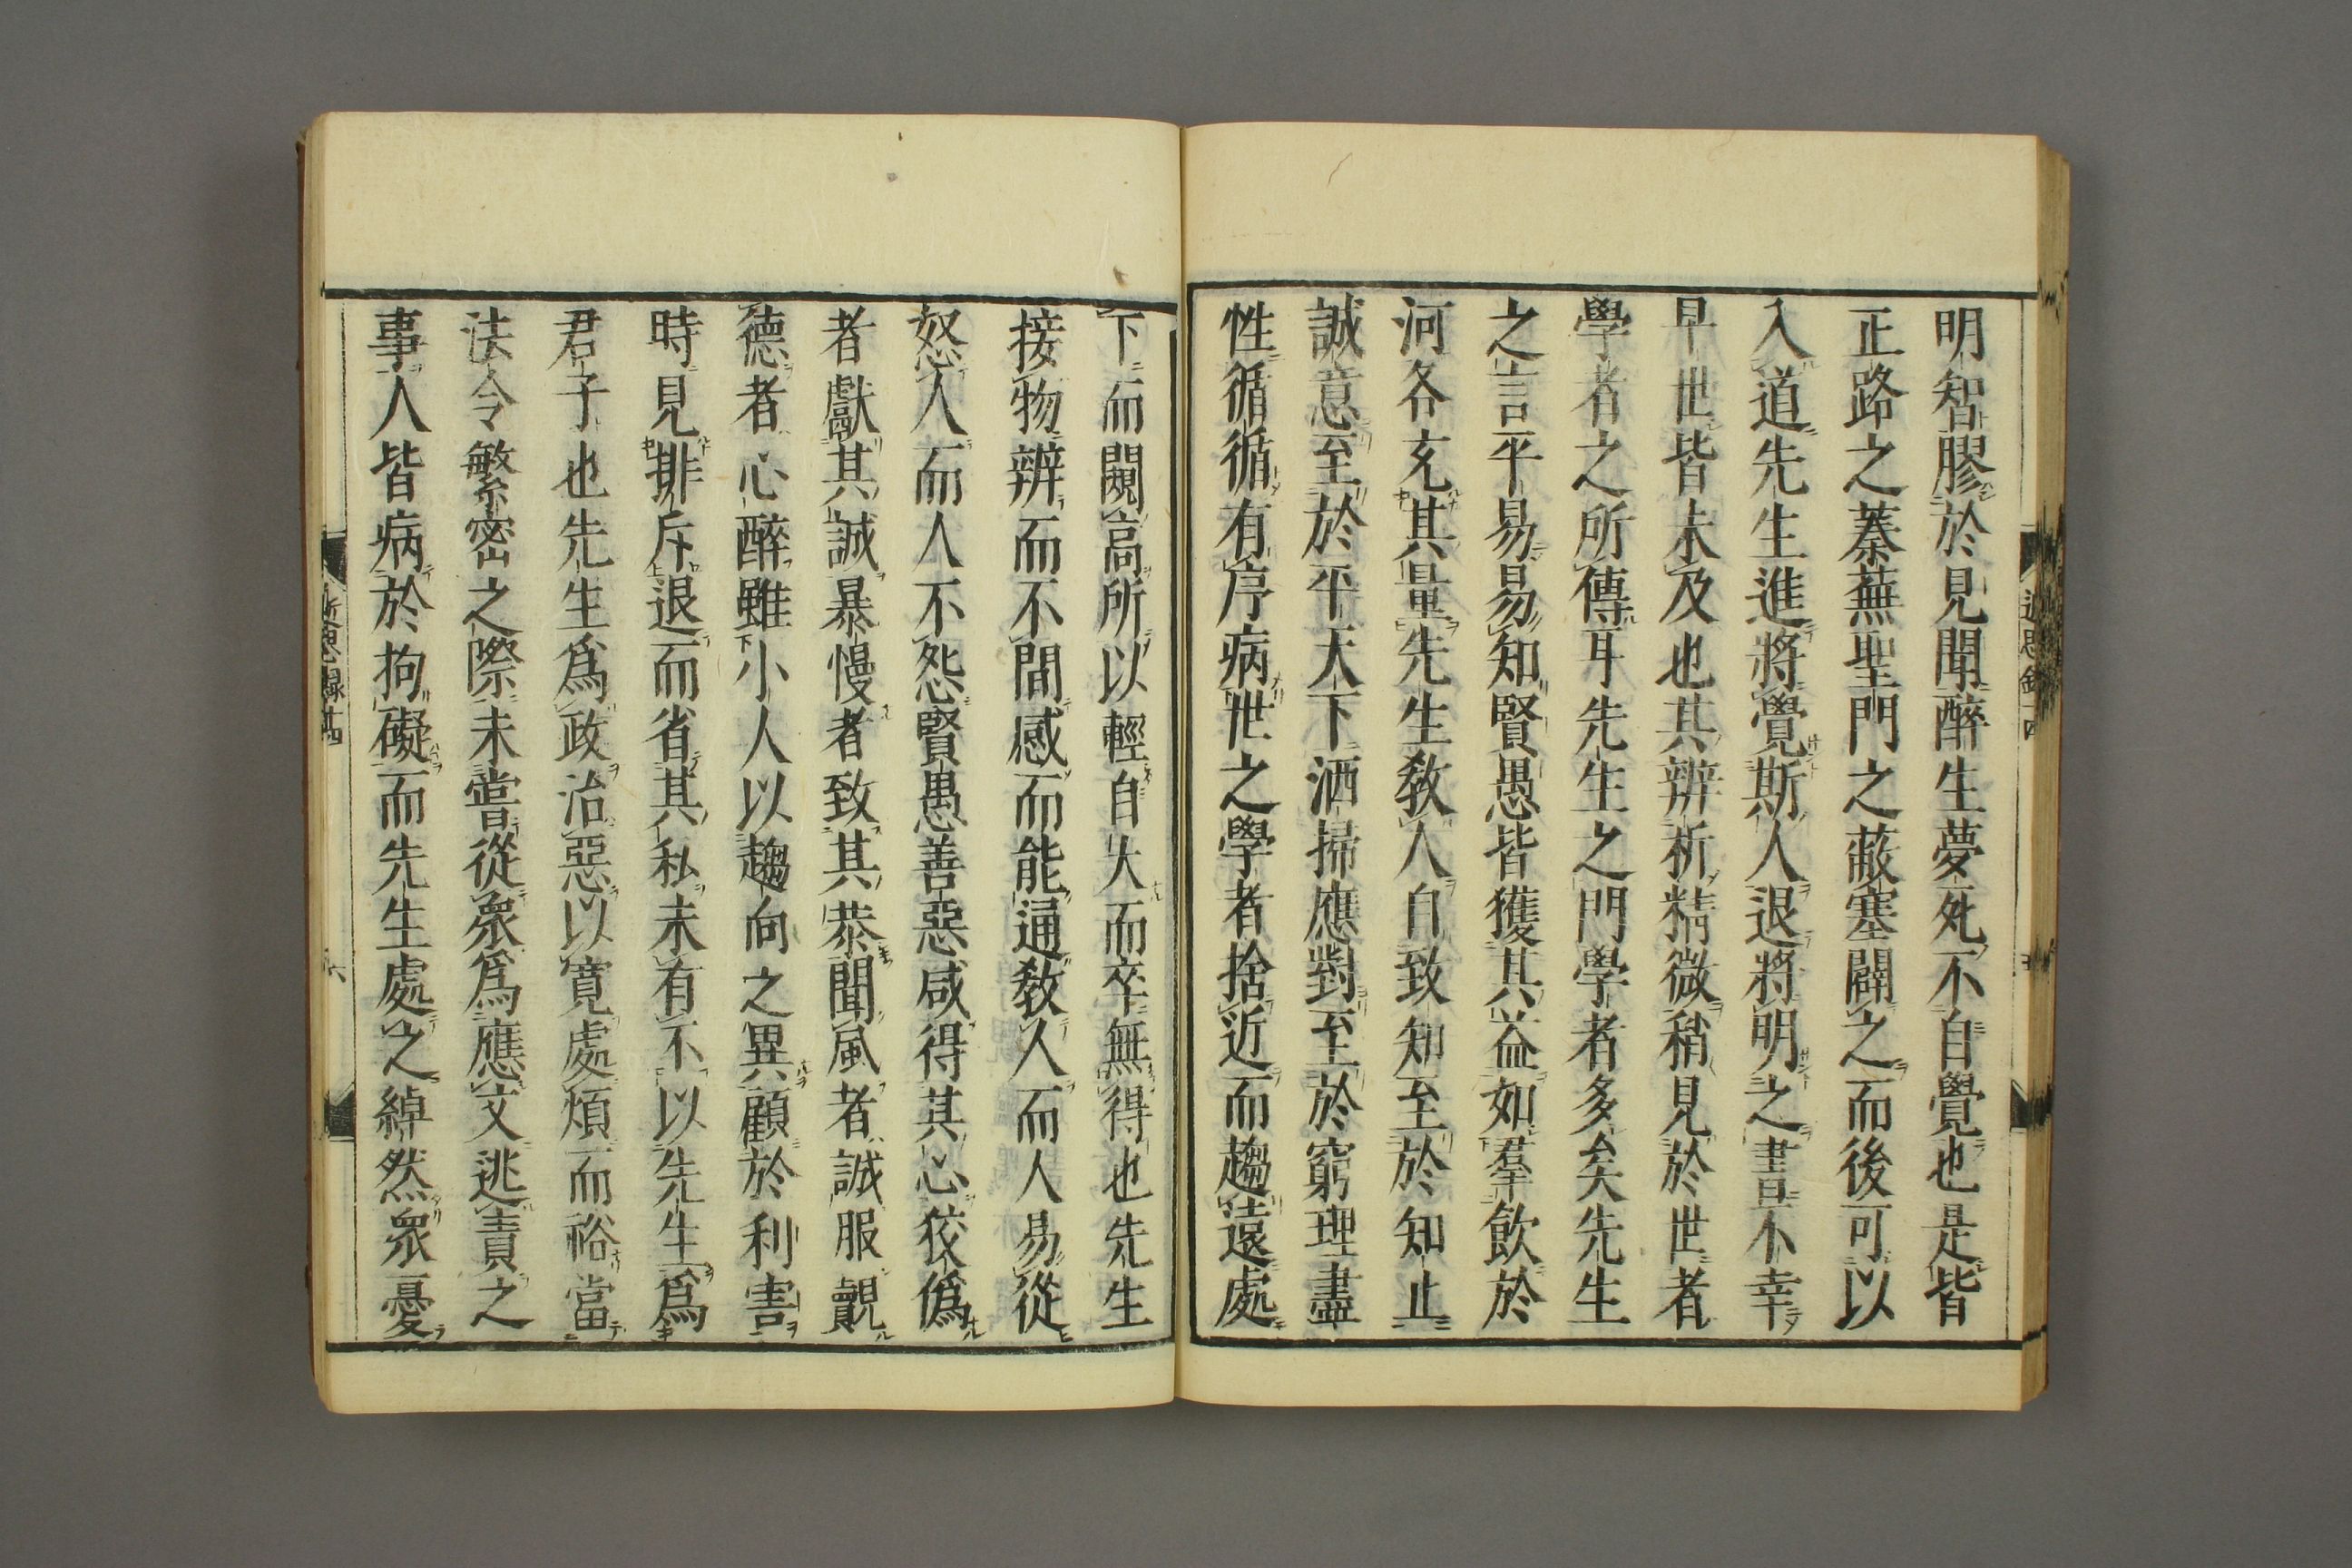 明智膠於見聞醉生夢死不自覺也是皆
正路之蓁蕪聖門之蔽塞闢之而後可以
入道先生進將覺斯人退將明之書不幸
早世皆未及也其辨析精微稍見於世者
學者之所傳耳先生之門學者多矣先生
之言平易易知賢愚皆獲其益如羣飲於
河各充其量先生教人自致知至於知止
誠意至於平天下洒掃應對至於窮理盡
性循循有序病世之學者捨近而趨遠處
下而闚高所以輕自大而卒無得也先生
接物辨而不間感而能通教人而人易從
怒人而人不怨賢愚善惡咸得其心狡偽
者獻其誠暴慢者致其恭聞風者誠服覿
德者心醉雖小人以趨向之異顧於利害
時見排斥退而省其私未有不以先生爲
君子也先生爲政治惡以寬處煩而裕當
法令繁密之際未嘗從衆爲應文逃責之
事人皆病於拘礙而先生處之綽然衆憂
近思錄十四
六